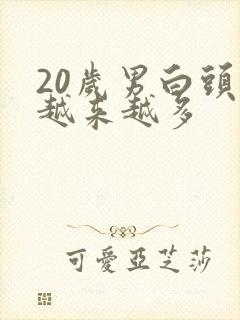 20歲男白頭
越来越多
可愛亞芝莎